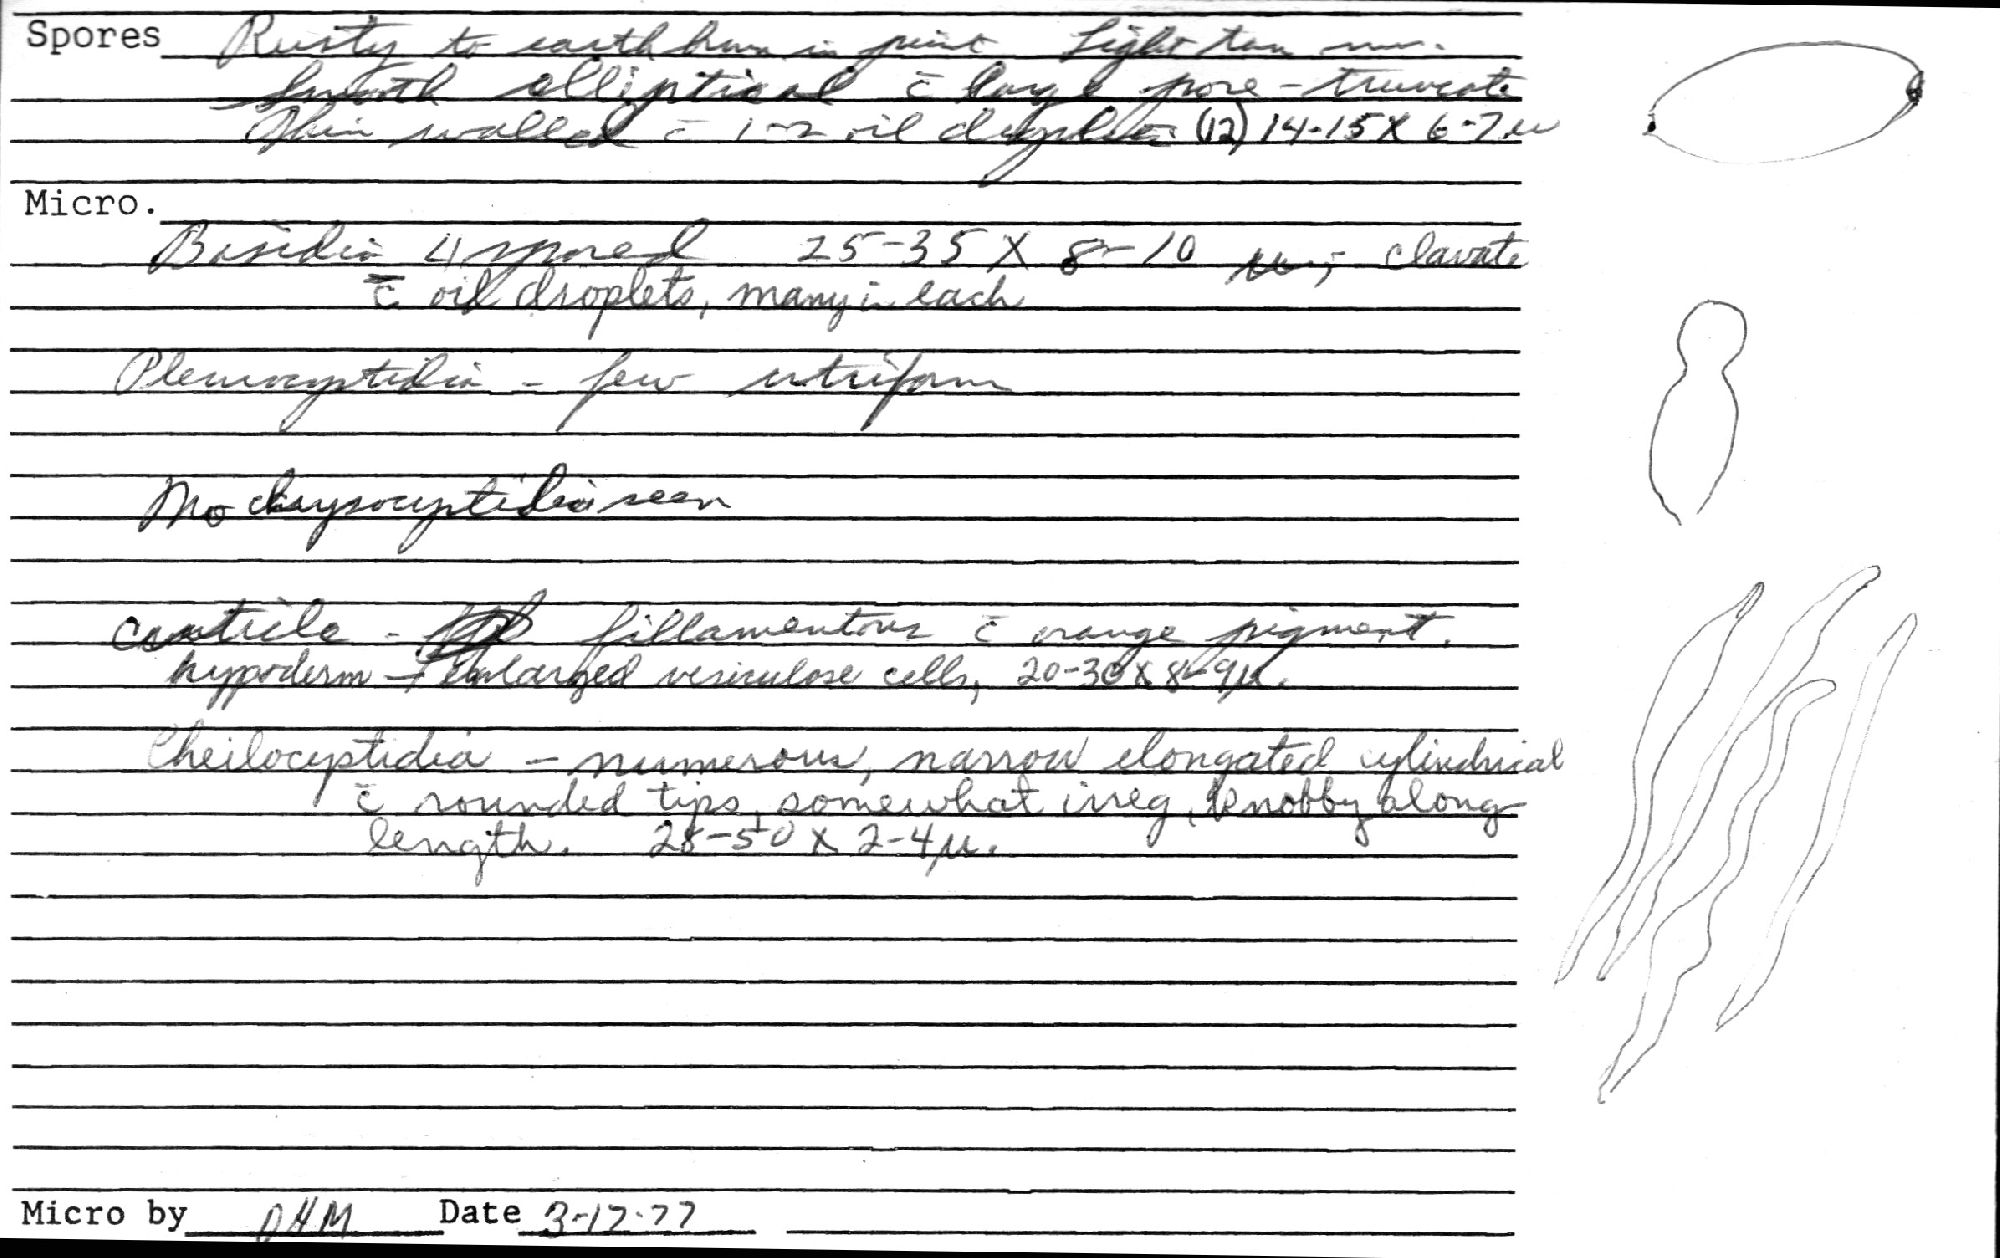 Spores Rusty to earth brown in print Light tan mic.
Smooth elliptical c̄ large pore - truncate
Thin walled c̄ 1-2 oil droplets (12) 14-15 X 6-7 µ
Micro.
Basidia 4 spored 25-35 X 8-10 µ; clavate
c̄ oil droplets, many in each
Pleurocystidia - few utriform
No chrysocystidia seen
Cuticle - fillamentous c̄ orange pigment.
hypoderm - enlarged vesiculose cells, 20-30 X 8-9µ.
Cheilocystidia - numerous, narrow elongated cylindrical
c̄ rounded tips, somewhat irreg, knobby along
length. 28-50 X 2-4µ.
Micro by DHM Date 3-17-77